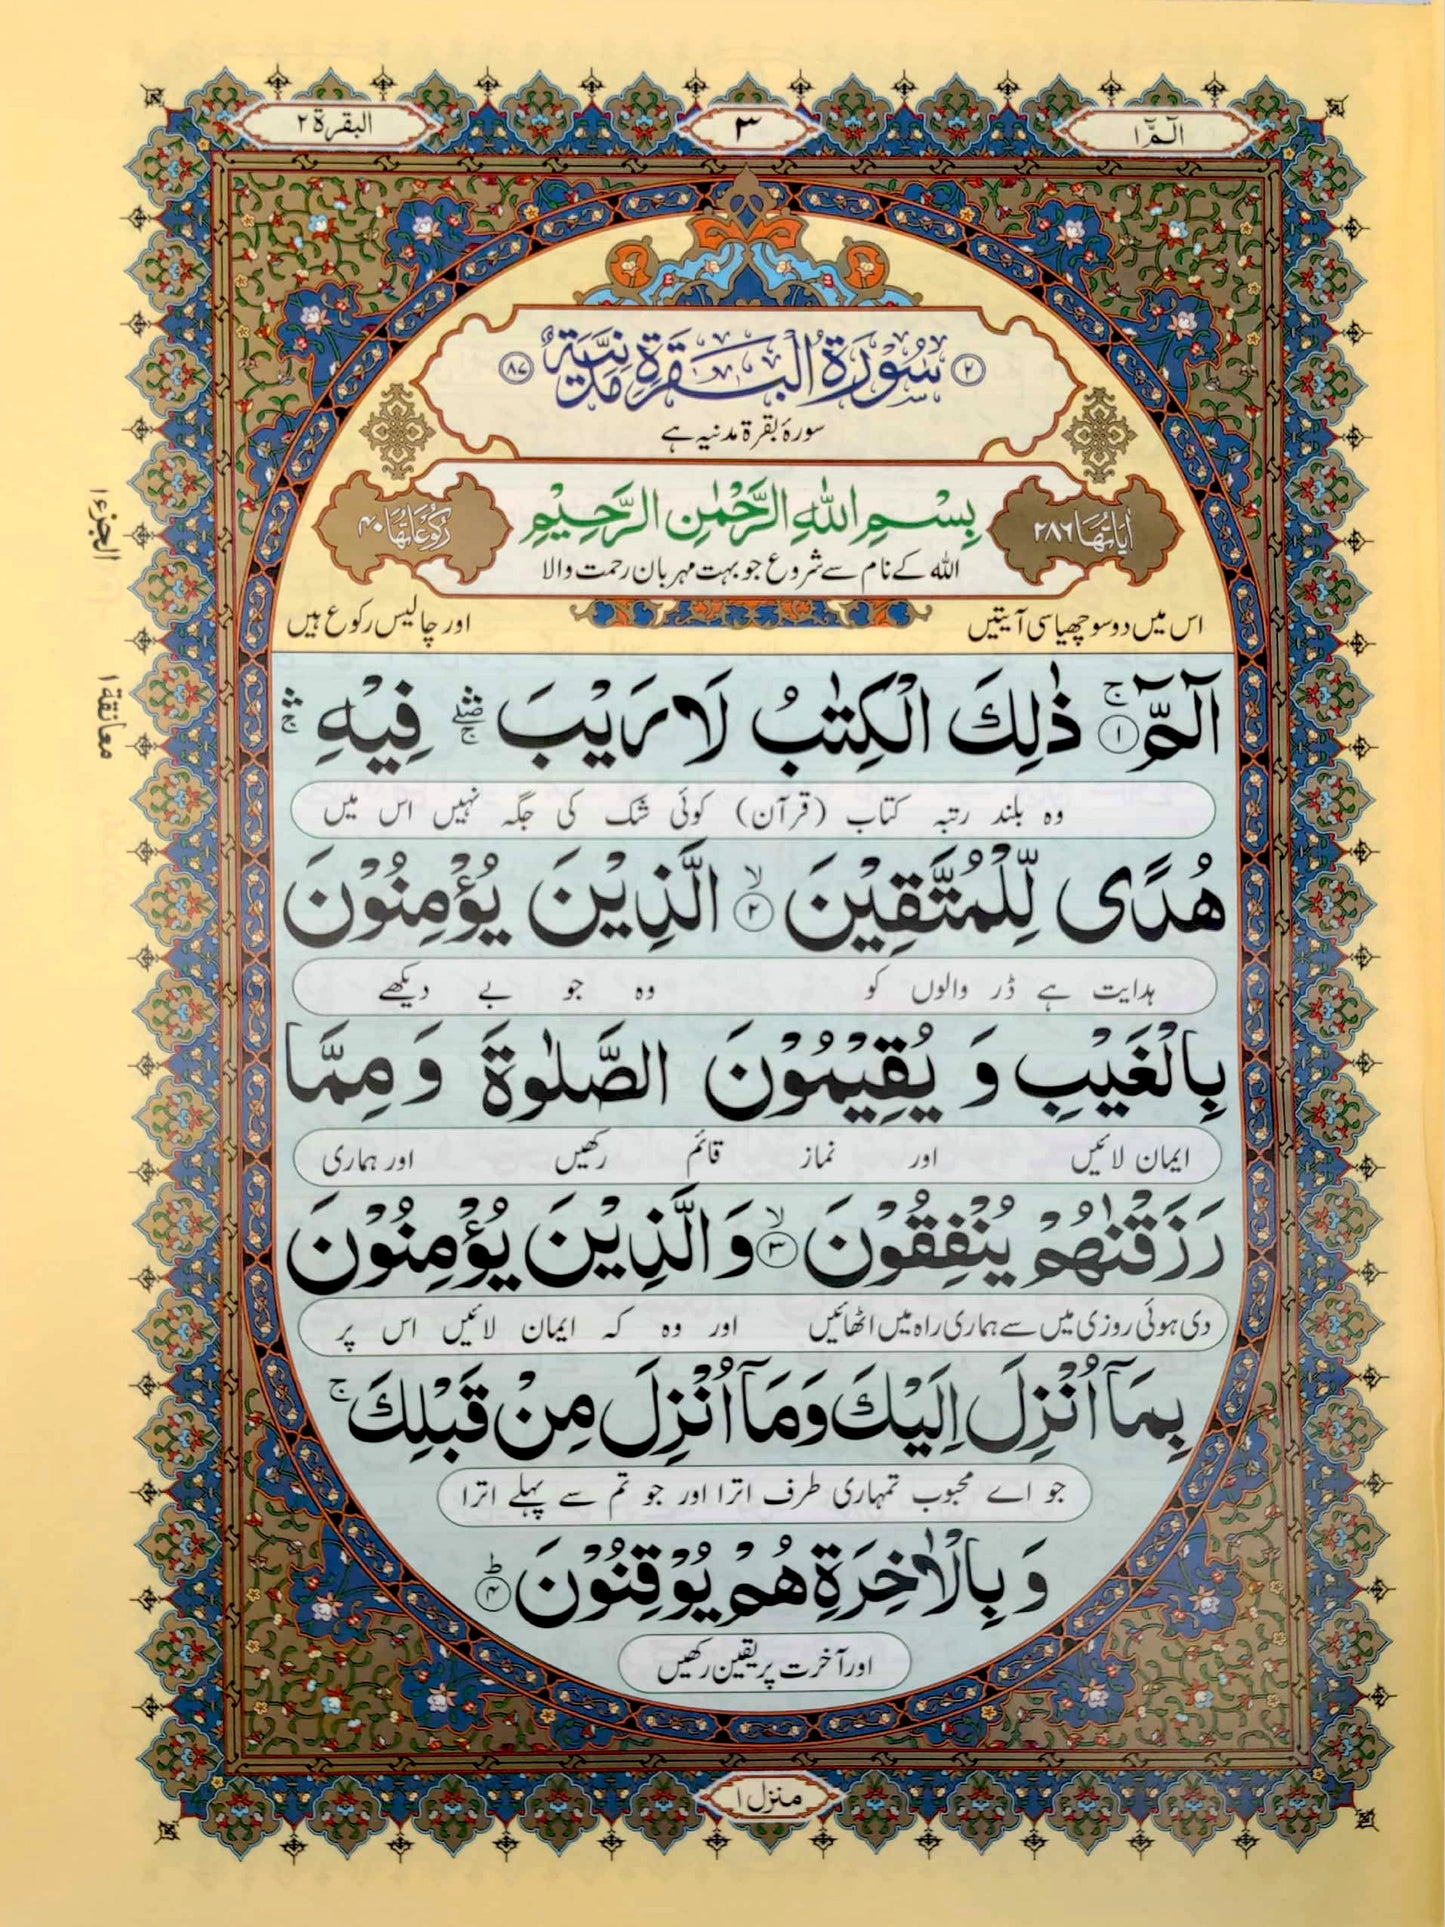 الٓمّٓ ١
٣
البقرة ٢
٢ سُوْرَةُ الْبَقَرَةِ مَدَنِيَّةٌ ٨٧
سورۂ بقرۃ مدنیہ ہے
اٰيَاتُهَا ٢٨٦
بِسْمِ اللّٰهِ الرَّحْمٰنِ الرَّحِيْمِ
رُكُوْعَاتُهَا ٤٠
اللہ کے نام سے شروع جو بہت مہربان رحمت والا
اس میں دو سو چھیاسی آیتیں
اور چالیس رکوع ہیں
الجزء ١
معانقة ١
الٓمّٓ ۚ ١ ذٰلِكَ الْكِتٰبُ لَا رَيْبَ ۛۖۚ فِيْهِ ۛۚ
وہ بلند رتبہ کتاب (قرآن) کوئی شک کی جگہ نہیں اس میں
هُدًى لِّلْمُتَّقِيْنَ ۙ ٢ الَّذِيْنَ يُؤْمِنُوْنَ
ہدایت ہے ڈر والوں کو وہ جو بے دیکھے
بِالْغَيْبِ وَ يُقِيْمُوْنَ الصَّلٰوةَ وَ مِمَّا
ایمان لائیں اور نماز قائم رکھیں اور ہماری
رَزَقْنٰهُمْ يُنْفِقُوْنَ ۙ ٣ وَ الَّذِيْنَ يُؤْمِنُوْنَ
دی ہوئی روزی میں سے ہماری راہ میں اٹھائیں اور وہ کہ ایمان لائیں اس پر
بِمَاۤ اُنْزِلَ اِلَيْكَ وَ مَاۤ اُنْزِلَ مِنْ قَبْلِكَ ۚ
جو اے محبوب تمہاری طرف اترا اور جو تم سے پہلے اترا
وَ بِالْاٰخِرَةِ هُمْ يُوْقِنُوْنَ ؕ ٤
اور آخرت پر یقین رکھیں
منزل ١